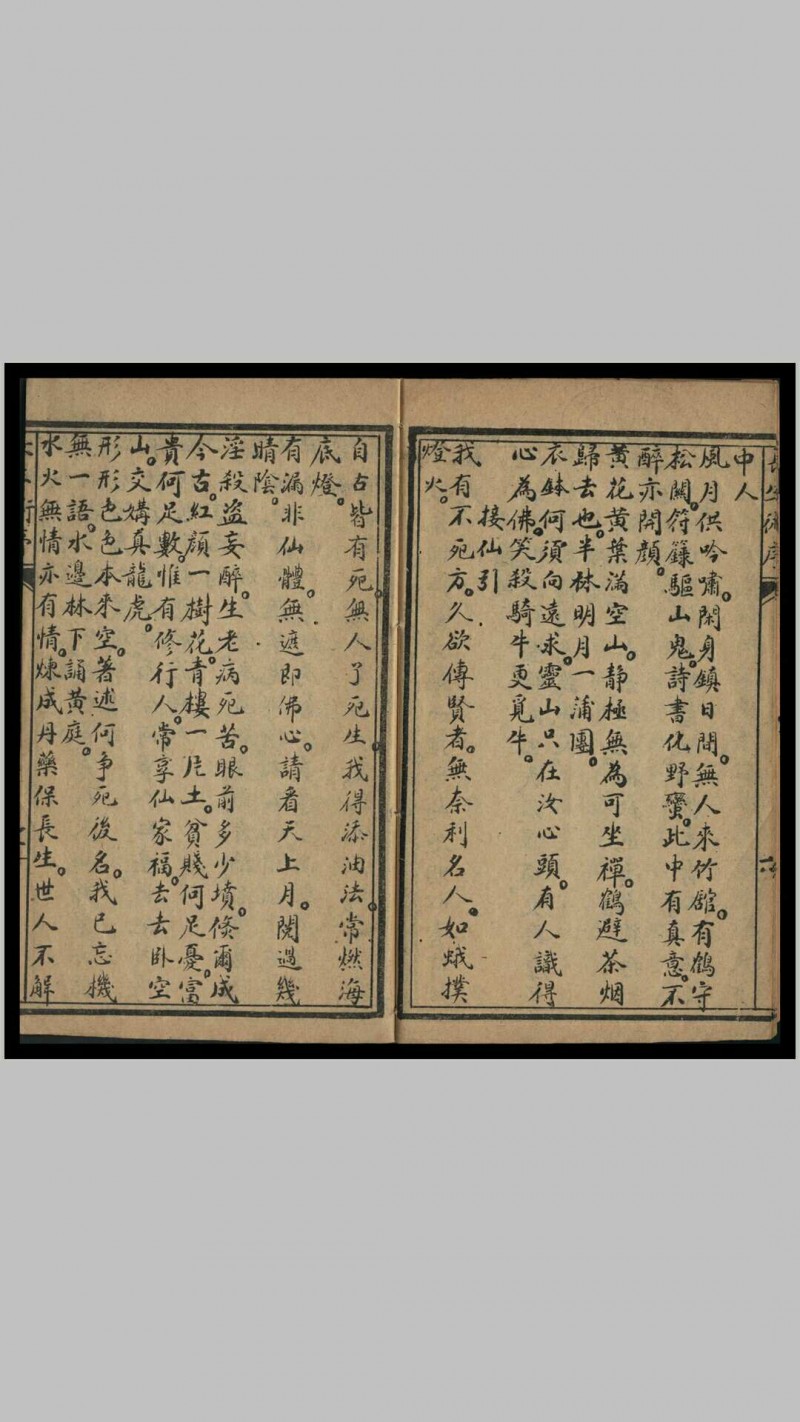 長生術序
中人
風月供吟嘯。閑身鎮日閒。無人來竹館。有鶴守
松關。符籙驅山鬼。詩書化野蠻。此中有真意。不
醉亦開顏。
黃花黃葉滿空山。静極無為可坐禪。鶴避茶烟
歸去也。半林明月一蒲團。
衣鉢何須向遠求。靈山只在汝心頭。有人識得
心為佛。笑殺騎牛更覓牛。
接仙引
我有不死方。久欲傳賢者。無奈利名人。如蛾撲
燈火。
自古皆有死。無人了死生。我得添油法。常燃海
底燈。
有漏非仙體。無遮即佛心。請看天上月。閱過幾
晴陰。
淫殺盜妄醉。生老病死苦。眼前多少墳。倏爾成
今古。紅顏一樹花。青樓一片土。貧賤何足憂。富
貴何足數。惟有修行人。常享仙家福。去去卧空
山。交媾真龍虎。
形形色色本來空。著述何争死後名。我已忘機
無一語。水邊林下誦黃庭。
水火無情亦有情。煉成丹藥保長生。世人不解